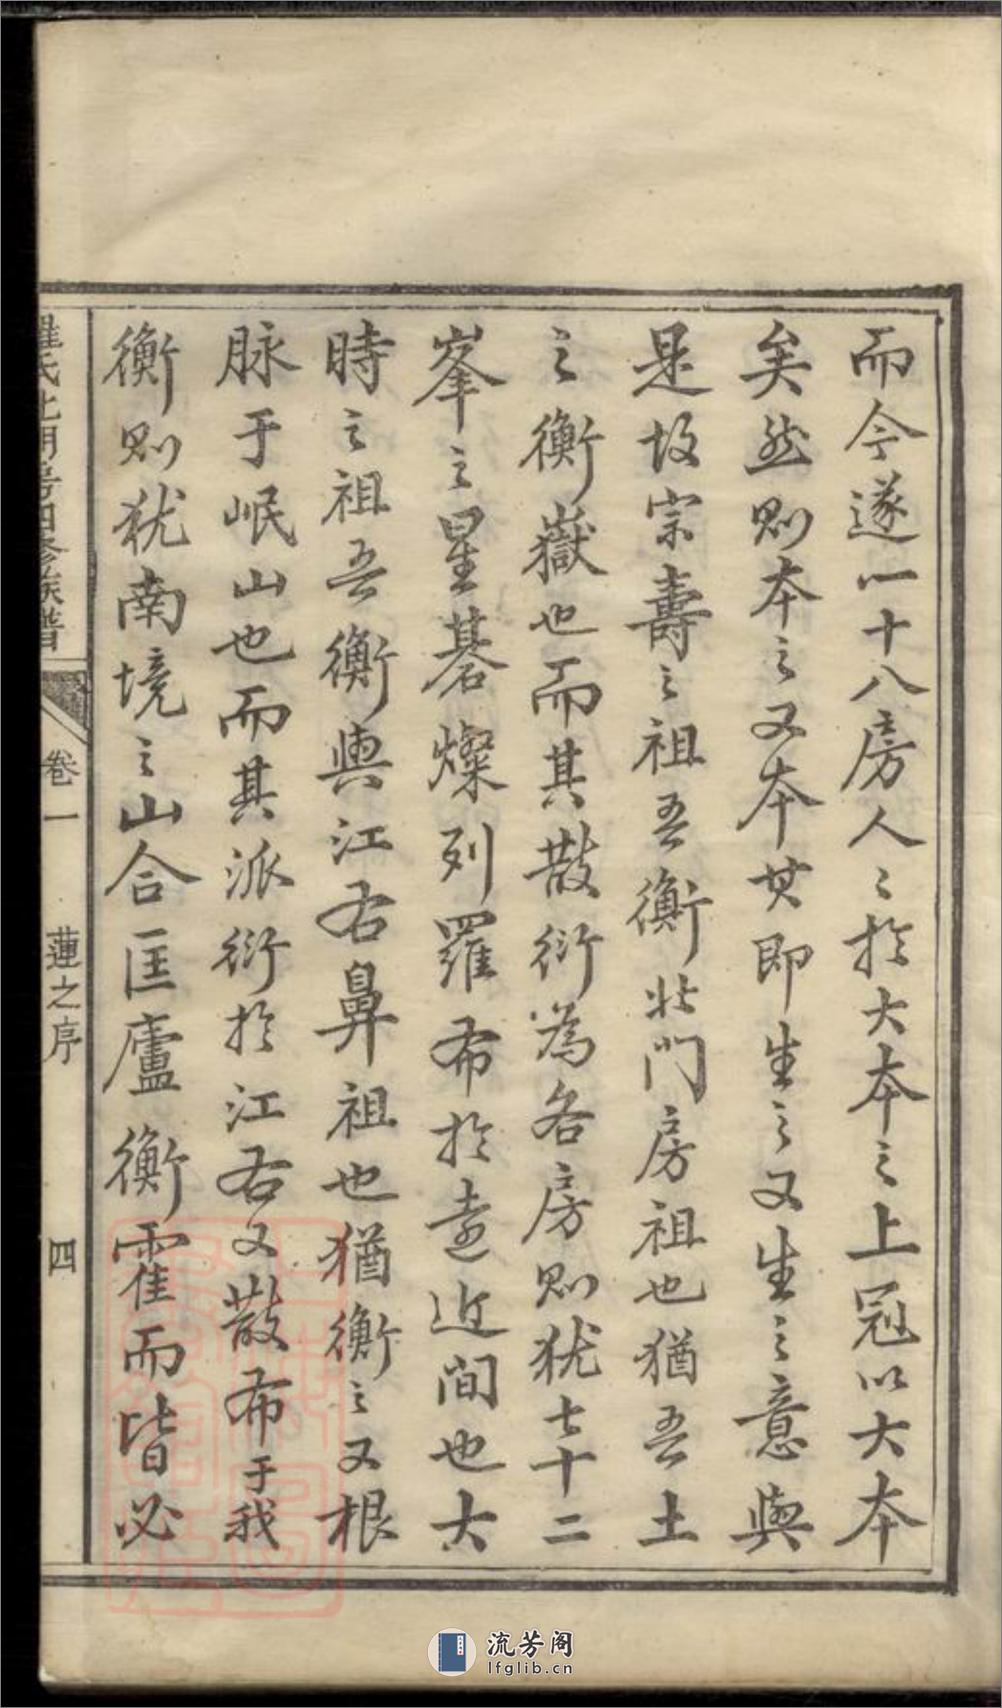 而今遂以一十八房人〻於大本之上冠以大本
矣然則本之又本其即生之又生之意與
是故宗壽之祖吾衡北門房祖也猶吾土
之衡嶽也而其散衍為各房則犹七十二
峯之星碁燦列羅布於遠近間也大
時之祖吾衡與江右鼻祖也猶衡之又根
脉于岷山也而其派衍於江右又散布于我
衡則犹南境之山合匡廬衡霍而皆必
卷一
蓮之序
四
流芳阁
lfglib.cn